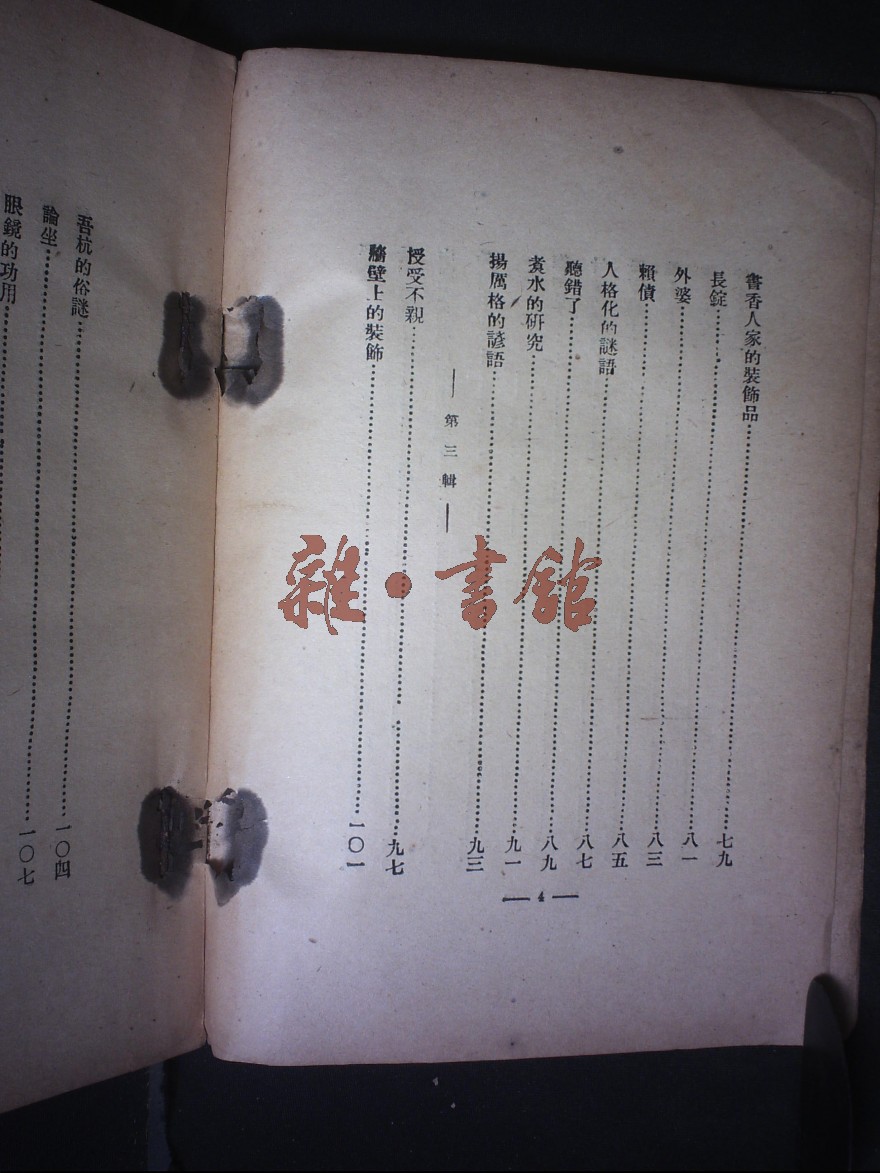 書香人家的裝飾品……七九
長錠……八一
外婆……八三
賴債……八五
人格化的謎語……八七
聽錯了……八九
煮水的研究……九一
揚厲格的諺語……九三
——第三輯——
授受不親……九七
牆壁上的裝飾……一〇一
— 4 —
吾杭的俗謎……一〇四
論坐……一〇七
眼鏡的功用……
雜·書館